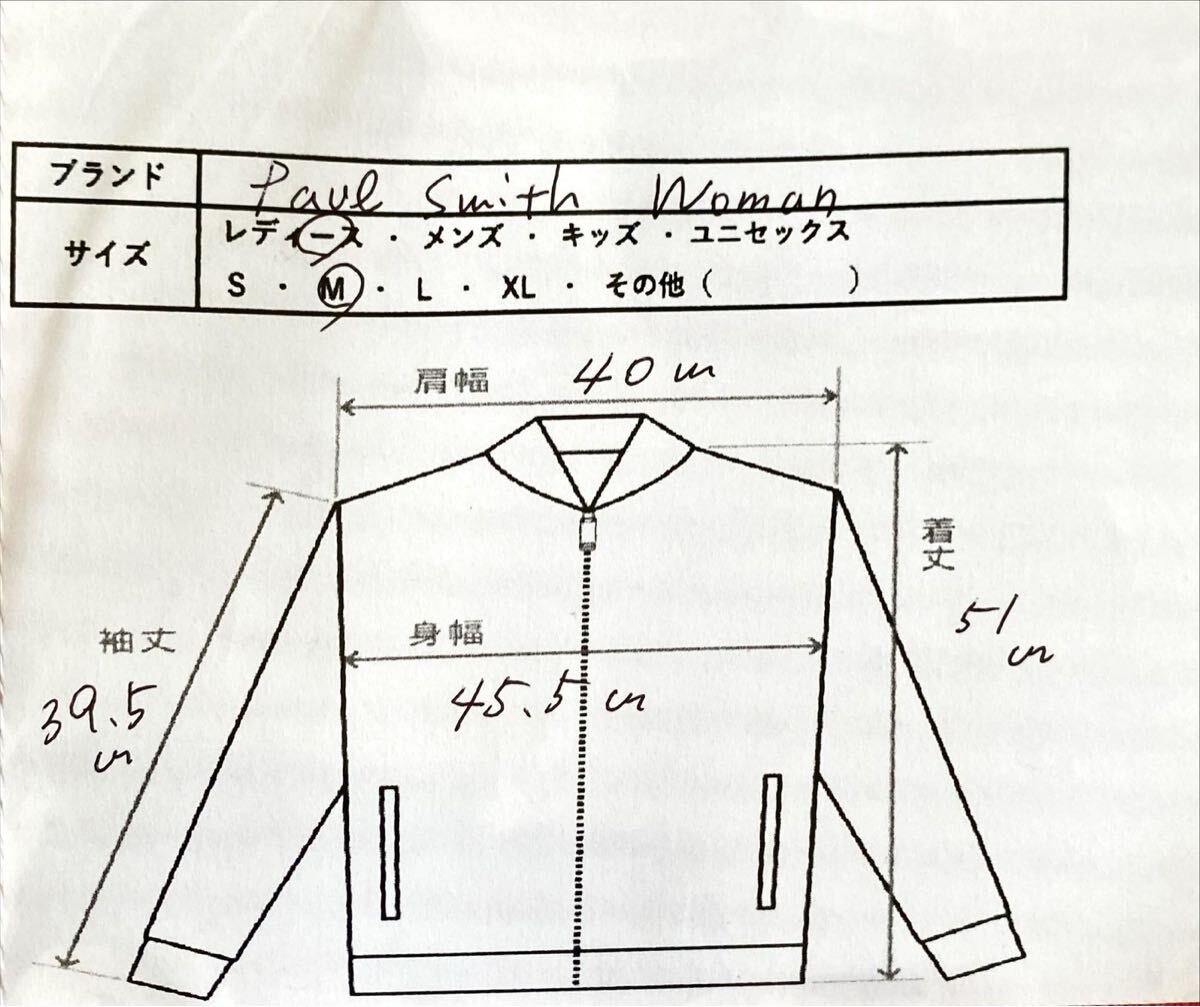 ブランド Paul Smith Woman
サイズ レディース ・ メンズ ・ キッズ ・ ユニセックス
S ・ M ・ L ・ XL ・ その他 ( )
肩幅 40 cm
着丈
51 cm
袖丈
39.5 cm
身幅
45.5 cm